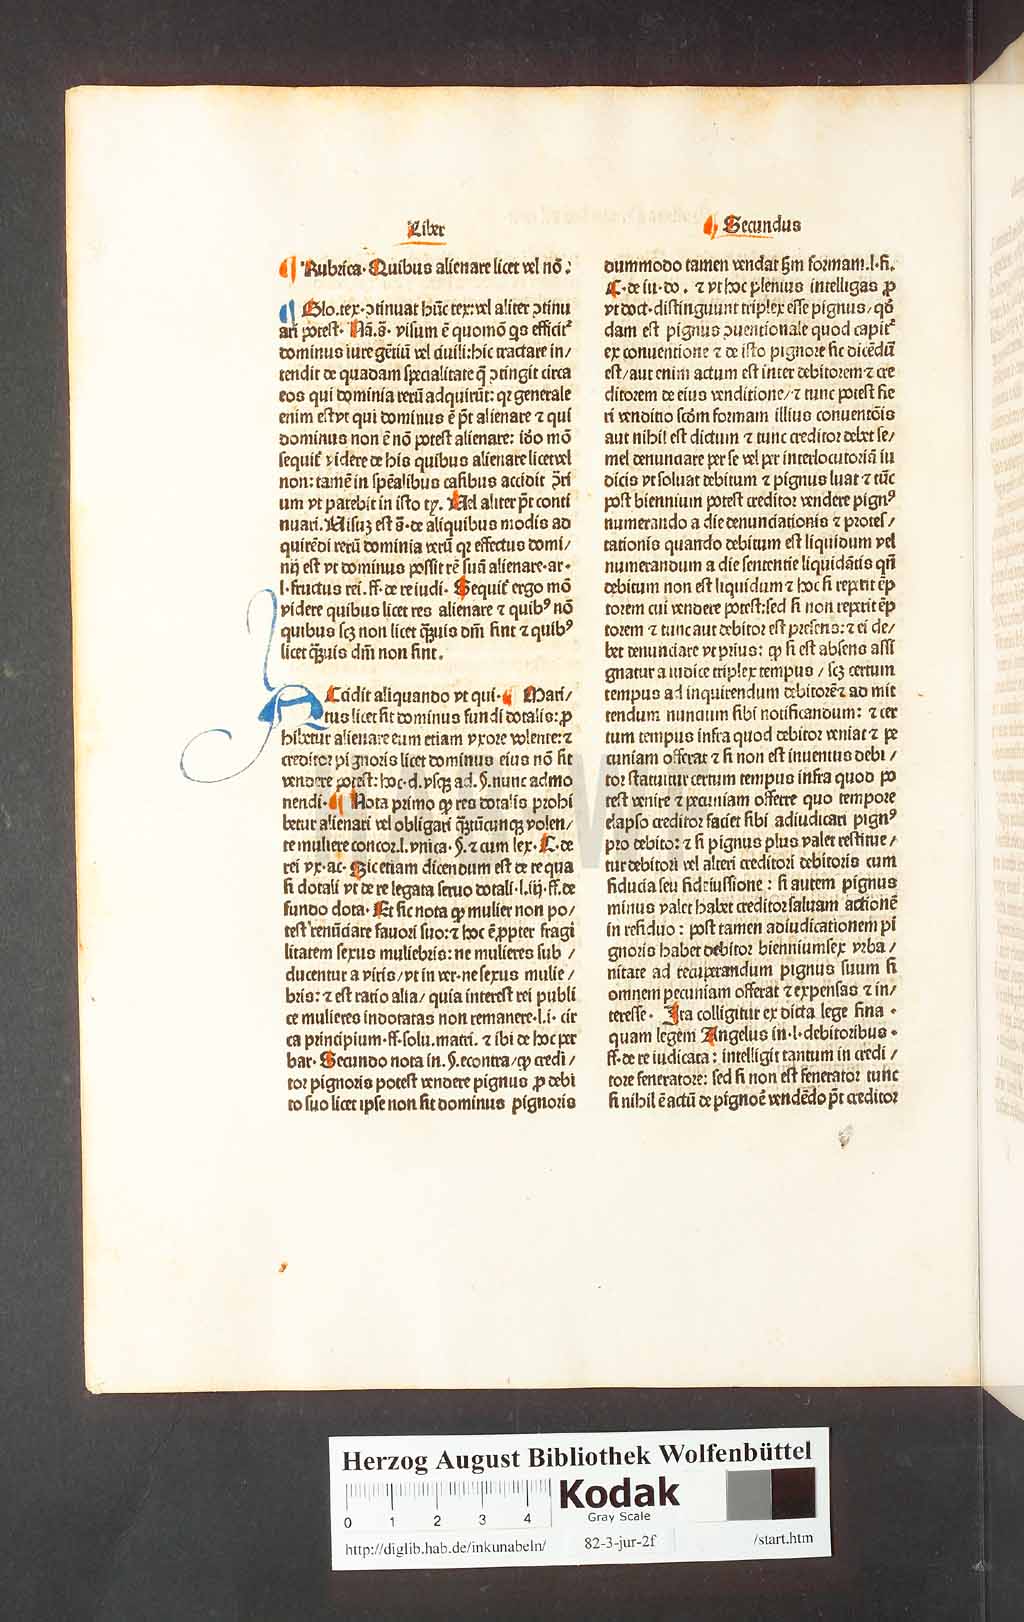 Liber
Secundus
¶ Rubrica. Quibus alienare licet vel nō.
¶ Glo. tex. ɔtinuat hūc tex: vel aliter ɔtinu
ari potest. Nā. s̄. visum ē quomō qs efficit᷑
dominus iure gētiū vel ciuili: hic tractare in/
tendit de quadam specialitate q̄ ɔtingit circa
eos qui dominia rerū adquirūt: qꝛ generale
enim est vt qui dominus ē p̄t alienare ⁊ qui
dominus non ē nō potest alienare: ido mō
sequit᷑ videre de his quibus alienare licet vel
non: tamē in spēalibus casibus accidit ɔ̄ri
um vt patebit in isto ty. Vel aliter p̄t conti
nuari. Visuꝫ est s̄. de aliquibus modis ad
quirēdi rerū dominia verū qꝛ effectus domi/
nij est vt dominus possit rē suā alienare. ar.
l. fructus rei. ff. de re iudi. Sequit᷑ ergo mō
videre quibus licet res alienare ⁊ quibꝰ nō
quibus scꝫ non licet q̄ꝫuis dn̄i sint ⁊ quibꝰ
licet q̄ꝫuis dn̄i non sint.
ACcidit aliquando vt qui. ¶ Mari/
tus licet sit dominus fundi dotalis: ꝓ
hibetur alienare eum etiam vxore volente: ⁊
creditor pignoris licet dominus eius nō sit
vendere potest: hoc. d. vsqꝫ ad. §. nunc admo
nendi. ¶ Nota primo ꝙ res dotalis prohi
betur alienari vel obligari q̄ꝫtūcunqꝫ volen/
te muliere concor. l. vnica. §. ⁊ cum lex. C. de
rei vx. ac. Sic etiam dicendum est de re qua
si dotali vt de re legata seruo dotali. l. iij. ff. de
fundo dota. Et sic nota ꝙ mulier non po/
test renūciare fauori suo: ⁊ hoc ē ꝓpter fragi
litatem sexus muliebris: ne mulieres sub /
ducentur a viris/ vt in ver. ne sexus mulie /
bris: ⁊ est ratio alia/ quia interest rei publi
ce mulieres indotatas non remanere. l. i. cir
ca principium. ff. solu. matri. ⁊ ibi de hoc per
bar. Secundo nota in. §. econtra/ ꝙ credi/
tor pignoris potest vendere pignus ꝓ debi
to suo licet ipse non sit dominus pignoris
dummodo tamen vendat s̄m formam. l. fi.
C. de iu. do. ⁊ vt hoc plenius intelligas ꝓ
vt doct. distinguunt triplex esse pignus/ qd̄
dam est pignus ɔuentionale quod capit᷑
ex conuentione ⁊ de isto pignore sic dicēdū
est/ aut enim actum est inter debitorem ⁊ cre
ditorem de eius venditione/ ⁊ tunc potest fie
ri venditio scd̄m formam illius conuentōis
aut nihil est dictum ⁊ tunc creditor debet se/
mel denunciare per se vel per interlocutoriā iu
dicis vt soluat debitum ⁊ pignus luat ⁊ tūc
post biennium potest creditor vendere pignꝰ
numerando a die denunciationis ⁊ protes/
tationis quando debitum est liquidum vel
numerandum a die sententie liquidātis qn̄
debitum non est liquidum ⁊ hoc si reperit ēp
torem cui vendere potest: sed si non reperit ēp
torem ⁊ tunc aut debitor est presens: ⁊ ei de/
bet denunciare vt prius: ꝙ si est absens assi
gnatur a iudice triplex tempus / scꝫ certum
tempus ad inquirendum debitorē ⁊ ad mit
tendum nuncium sibi notificandum: ⁊ cer
tum tempus infra quod debitor veniat ⁊ pe
cuniam offerat ⁊ si non est inuentus debi /
tor statuitur certum tempus infra quod po
test venire ⁊ pecuniam offerre quo tempore
elapso creditor faciet sibi adiudicari pignꝰ
pro debito: ⁊ si pignus plus valet restitue /
tur debitori vel alteri creditori debitoris cum
fiducia seu fideiussione : si autem pignus
minus valet habet creditor saluam actionē
in residuo : post tamen adiudicationem pi
gnoris habet debitor biennium sex vrba /
nitate ad recuperandum pignus suum si
omnem pecuniam offerat ⁊ expensas ⁊ in/
teresse. Ita colligitur ex dicta lege fina .
quam legem Angelus in. l. debitoribus .
ff. de re iudicata : intelligit tantum in credi /
tore feneratore: sed si non est fenerator tunc
si nihil ē actū de pignoē vendēdo p̄t creditor
HAB WF
Herzog August Bibliothek Wolfenbüttel
Kodak
Gray Scale
0 1 2 3 4
http://diglib.hab.de/inkunabeln/ 82-3-jur-2f /start.htm